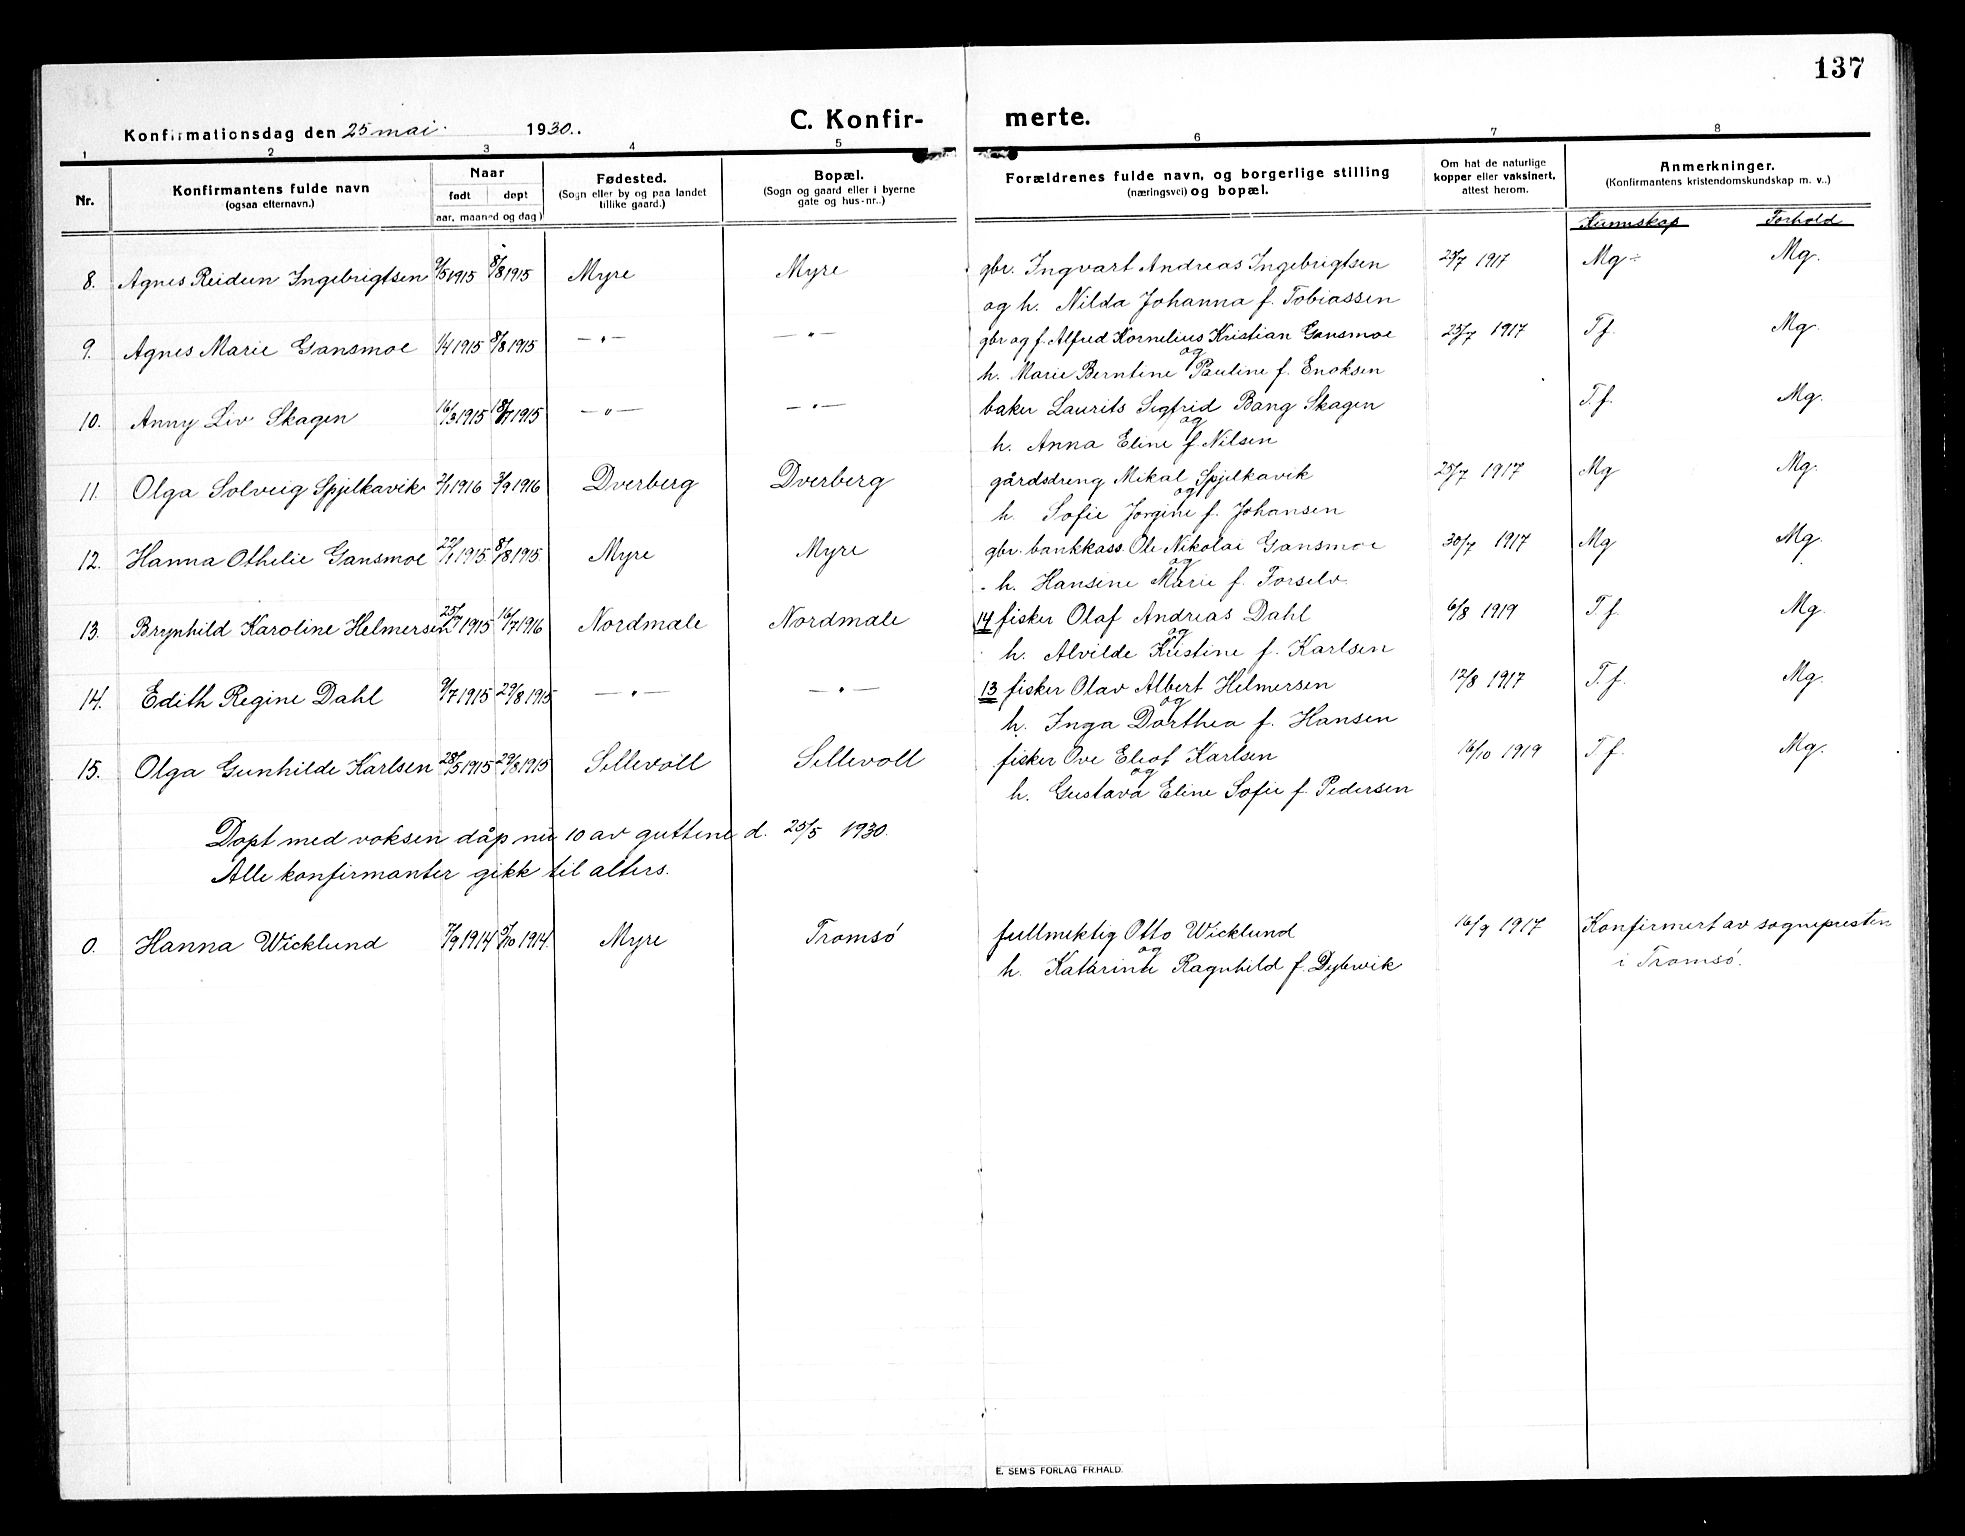 137
Konfirmationsdag den 25 mai. 1930.. C. Konfir- merte.
1 2 3 4 5 6 7 8
Nr. Konfirmantens fulde navn (ogsaa efternavn.) Naar født døpt aar, maaned og dag) Fødested. (Sogn eller by og paa landet tillike gaard.) Bopæl. (Sogn og gaard eller i byerne gate og hus-nr..) Forældrenes fulde navn, og borgerlige stilling (næringsvei) og bopæl. Om hat de naturlige kopper eller vaksinert, attest herom. Anmerkninger. (Konfirmantens kristendomskundskap m. v..)
Kunnskap Forhold
8. Agnes Reidun Ingebrigtsen 9/5 1915 8/8 1915 Myre Myre gbr. Ingvart Andreas Ingebrigtsen 25/7 1917 Mg÷ Mg.
og h. Nilda Johanna f. Tobiassen
9. Agnes Marie Gansmoe 1/4 1915 8/8 1915 —"— —"— gbr og f. Alfred Kornelius Kristian Gansmoe 23/7 1917 T.f. Mg.
og
h. Marie Berntine Pauline f. Enoksen
10. Anny Liv Skagen 16/3 1915 18/7 1915 —"— —"— baker Laurits Sigfrid Bang Skagen T.f. Mg.
og
h. Anna Eline f. Nilsen
11. Olga Solveig Spjelkavik 2/1 1916 3/9 1916 Dverberg Dverberg gårdsdreng Mikal Spjelkavik 25/7 1917 Mg Mg.
og
h. Sofie Jørgine f. Johansen
12. Hanna Othelie Gansmoe 22/1 1915 8/8 1915. Myre Myre gbr. bankkass. Ole Nikolai Gansmoe 30/7 1917 Mg Mg.
og
h. Hansine Marie f. Forselv.
13. Brynhild Karoline Helmersen 25/7 1915 16/7 1916 Nordmæle Nordmæle 14 fisker Olaf Andreas Dahl 6/8 1919 T.f. Mg.
og
h. Alvilde Kristine f. Karlsen
14. Edith Regine Dahl 9/7 1915 29/8 1915 —"— —"— 13 fisker Olav Albert Helmersen 12/8 1917 T.f. Mg.
og
h. Inga Dorthea f. Hansen
15. Olga Gunhilde Karlsen 28/5 1915 29/8 1915 Sellevoll Sellevoll fisker Ove Eliot Karlsen 16/10 1919 T.f. Mg.
og
h. Gustava Eline Sofie f. Pedersen
Døpt med voksen dåp nu 10 av guttene d. 25/5 1930.
Alle konfirmanter gikk til alters.
0. Hanna Wicklund 7/9 1914 9/10 1914. Myre Tromsø fullmektig Otto Wicklund 16/9 1917 Konfirmert av sognepresten
og
h. Kathrine Ragnhild f. Dybwik i Tromsø.
E. SEM'S FORLAG FR.HALD.